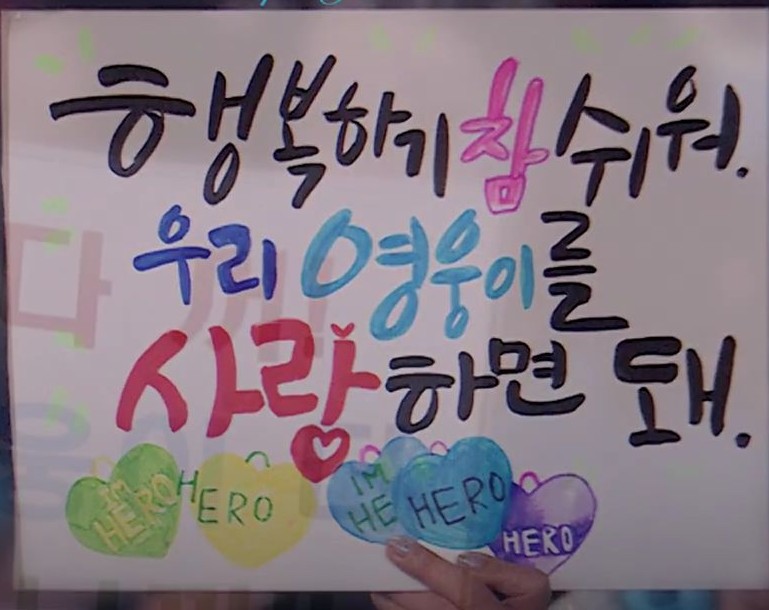 행복하기 참 쉬워.
우리 영웅이를
사랑하면 돼.
IM HERO HERO IM HE HERO HERO